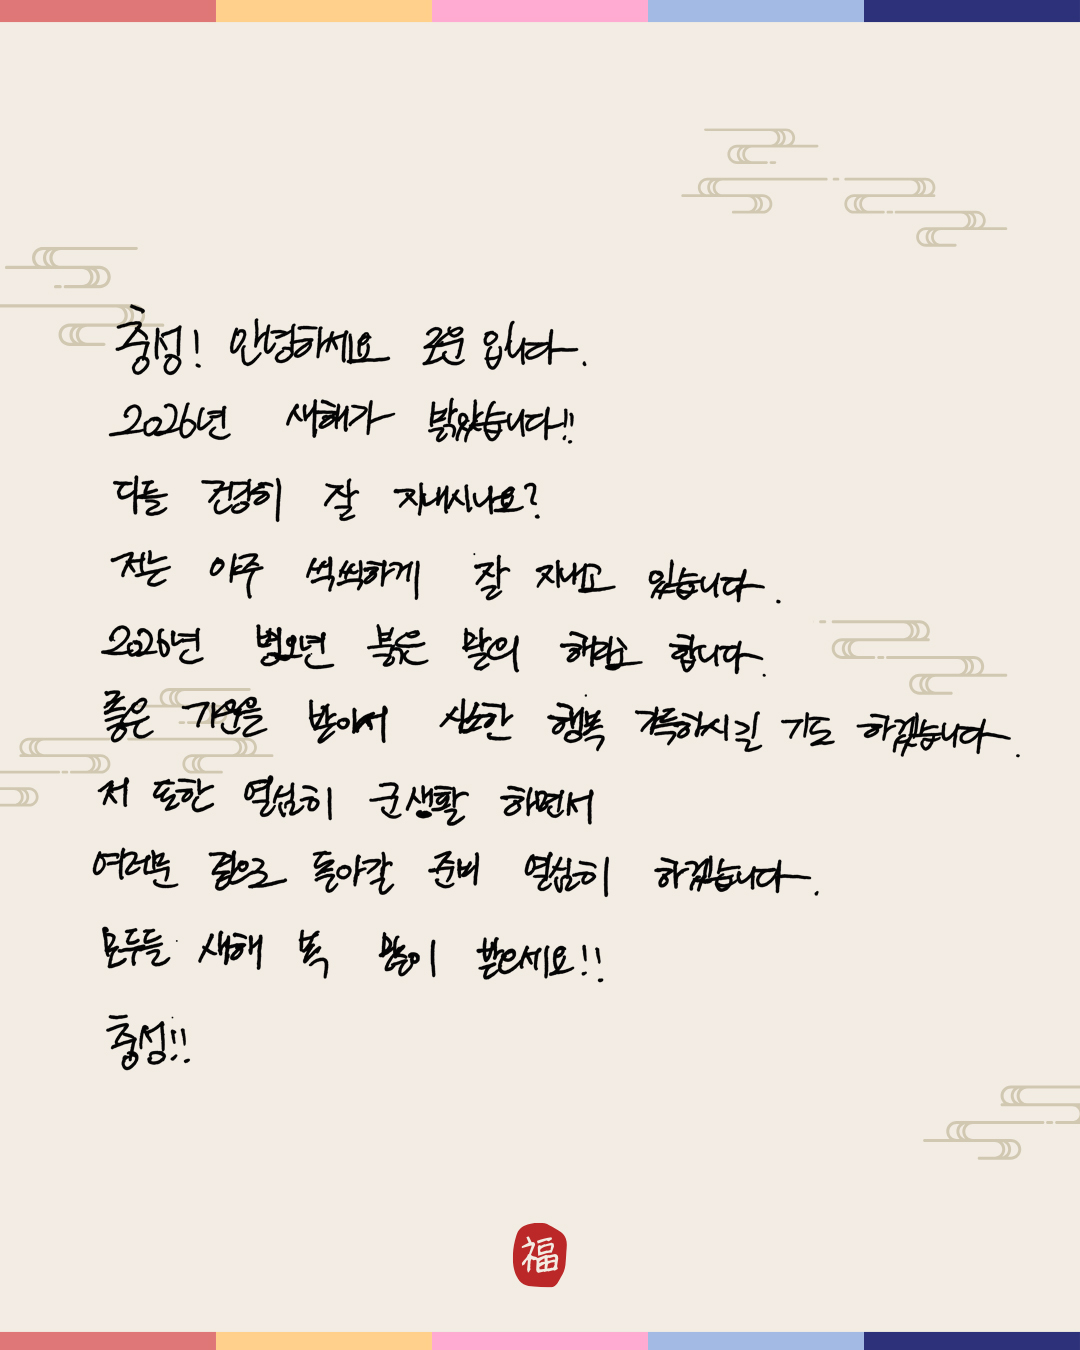 충성! 안녕하세요 로운 입니다.
2026년 새해가 밝았습니다!!
다들 건강히 잘 지내시나요?
저는 아주 씩씩하게 잘 지내고 있습니다.
2026년 병오년 붉은 말의 해라고 합니다.
좋은 기운을 받아서 소소한 행복 가득하시길 기도 하겠습니다.
저 또한 열심히 군생활 하면서
여러분 곁으로 돌아갈 준비 열심히 하겠습니다.
모두들 새해 복 많이 받으세요!!
충성!!
福